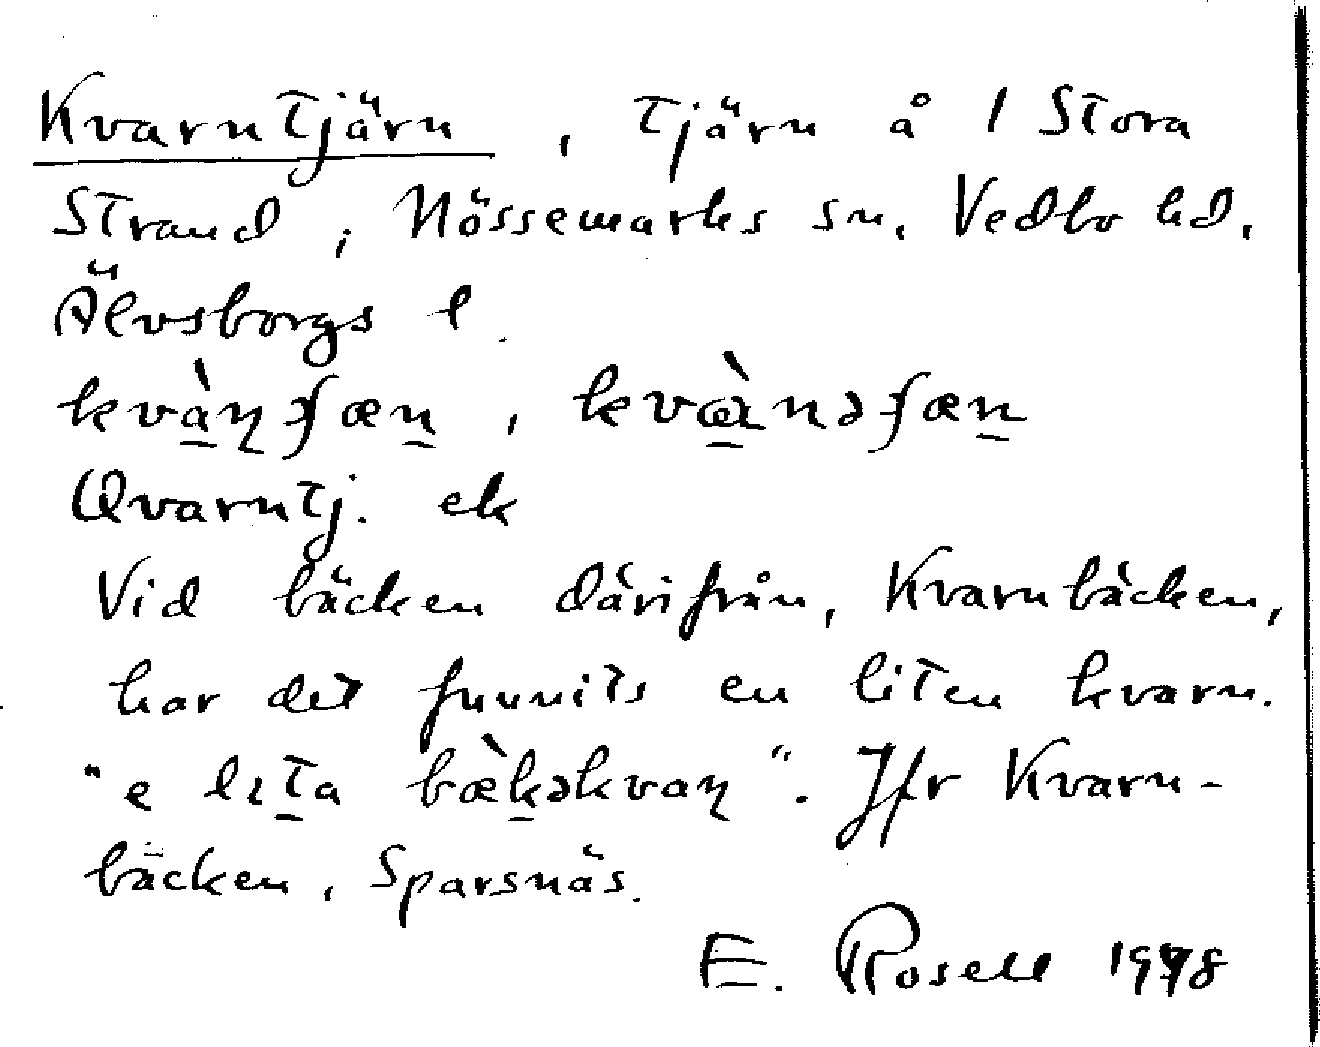 Kvarntjärn, tjärn å 1 Stora
Strand, Nössemarks sn. Vedbo hd.
Älvsborgs l.
kvàɳʃæn, kvæ̀nəʃæn
Qvarntj. ek
Vid bäcken därifrån, Kvarnbäcken,
har det funnits en liten kvarn.
"e lɪta bæ̀kəkvaɳ". Jfr Kvarn-
bäcken, Sparsnäs.
E. Rosell